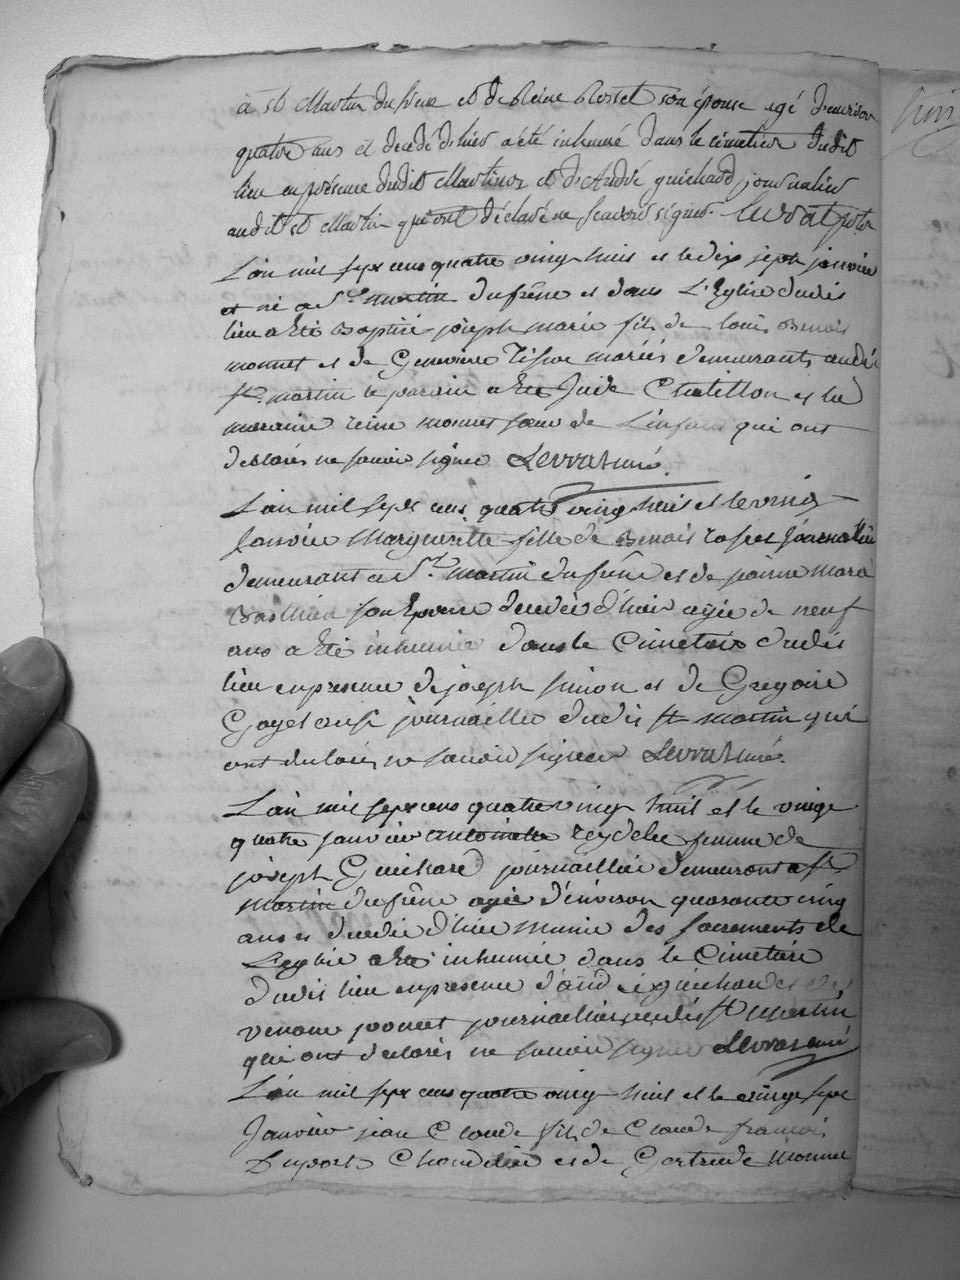 à st Martin du frene et de Reine Rosset son épouse agé d'environ
quatre ans et decedé d'hier a été inhumé dans le cimetiere dudit
lieu en présence dudit Martinez et d'André guichard journalier
audit st Martin qui ont déclaré ne scavoir signer. Levrat ptre
L'an mil sept cens quatre vingt huit et le dix sept janvier
est né a St martin dufrêne et dans L'Eglise dudit
lieu a Eté Baptisé joseph marie fils de louis Benoit
monnet et de Genevieve mariés demeurants audit
st martin le parrain a Eté Jude Chatillon et la
maraine reine monnet soeur de L'enfant qui ont
declarés ne savoir signer Levrat curé.
L'an mil sept cens quatre vingt huit et le vingt
Janvier Marguerite fille de Benoit rosset journallier
demeurant a St martin dufrêne et de
son Epouse decedée d'hier agée de neuf
ans a Eté inhumée dans le Cimetiere dudit
lieu en presence de joseph simon et de Gregoire
Goyet aussi journaillier dudit st martin qui
ont declarés ne savoir signer Levrat curé.
L'an mil sept cens quatre vingt huit et le vingt
quatre janvier antoinette reydelet femme de
joseph Guichard journaillier demeurant a st
Martin dufrêne agée d'environ quarante cinq
ans et decedée d'hier munie des sacrements de
L'eglise a Eté inhumée dans le Cimetiere
dudit lieu en presence d'andré guichard et de
journailliers dudit st Martin
qui ont declarés ne savoir signer Levrat curé
L'an mil sept cens quatre vingt huit et le vingt sept
Janvier jean Claude fils de Claude françois
Duport Chandelier et de Gertrude monnet